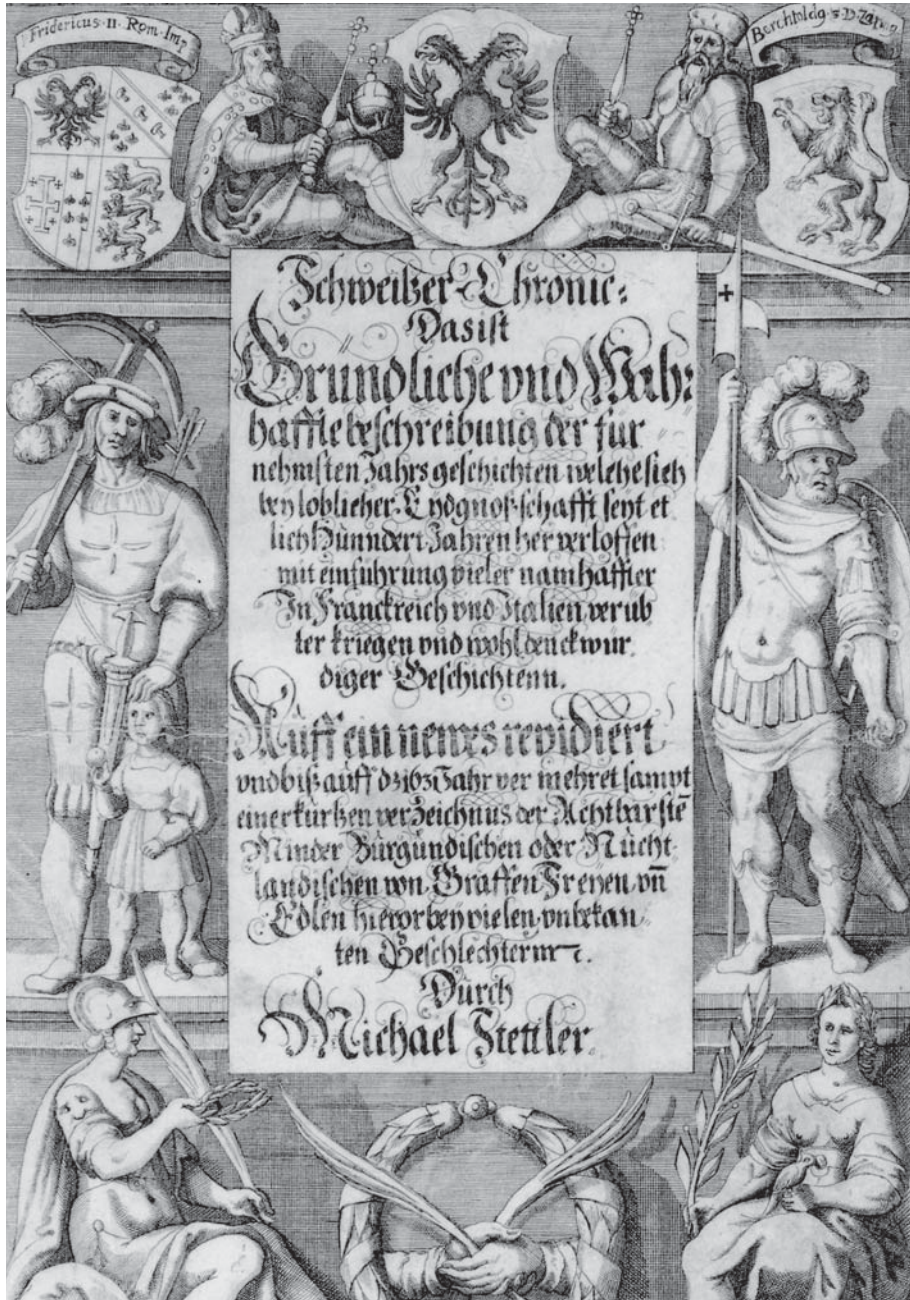 Fridericus · II · Rom · Imp
Berchtoldg · 5 · D · Zär
Schweitzer Chronic:
Das ist
Grundliche vnd Wah:
haffte beschreibung der für
nehmsten Jahrs geschichten welche sich
bey loblicher Eydgnoß schafft seyt et
lich Hünndert Jahren her verloffen
mit einfuhrung vieler namhaffter
In Franckreich vnd Italien verüb
ter kriegen vnd wohl denckwür
diger Geschichtenn.
Auff ein newes revidiert
vnd biß auff dz 1631 Jahr ver mehret sampt
einer kurtzen verzeichnus der Achtbarstē
Minder Burgundischen oder Nücht
landischen von Graffen Freyen vn̄
Edlen hievor bey vielen vnbekan
ten Geschlechternn ꝛc.
Durch
Michael Stettler.